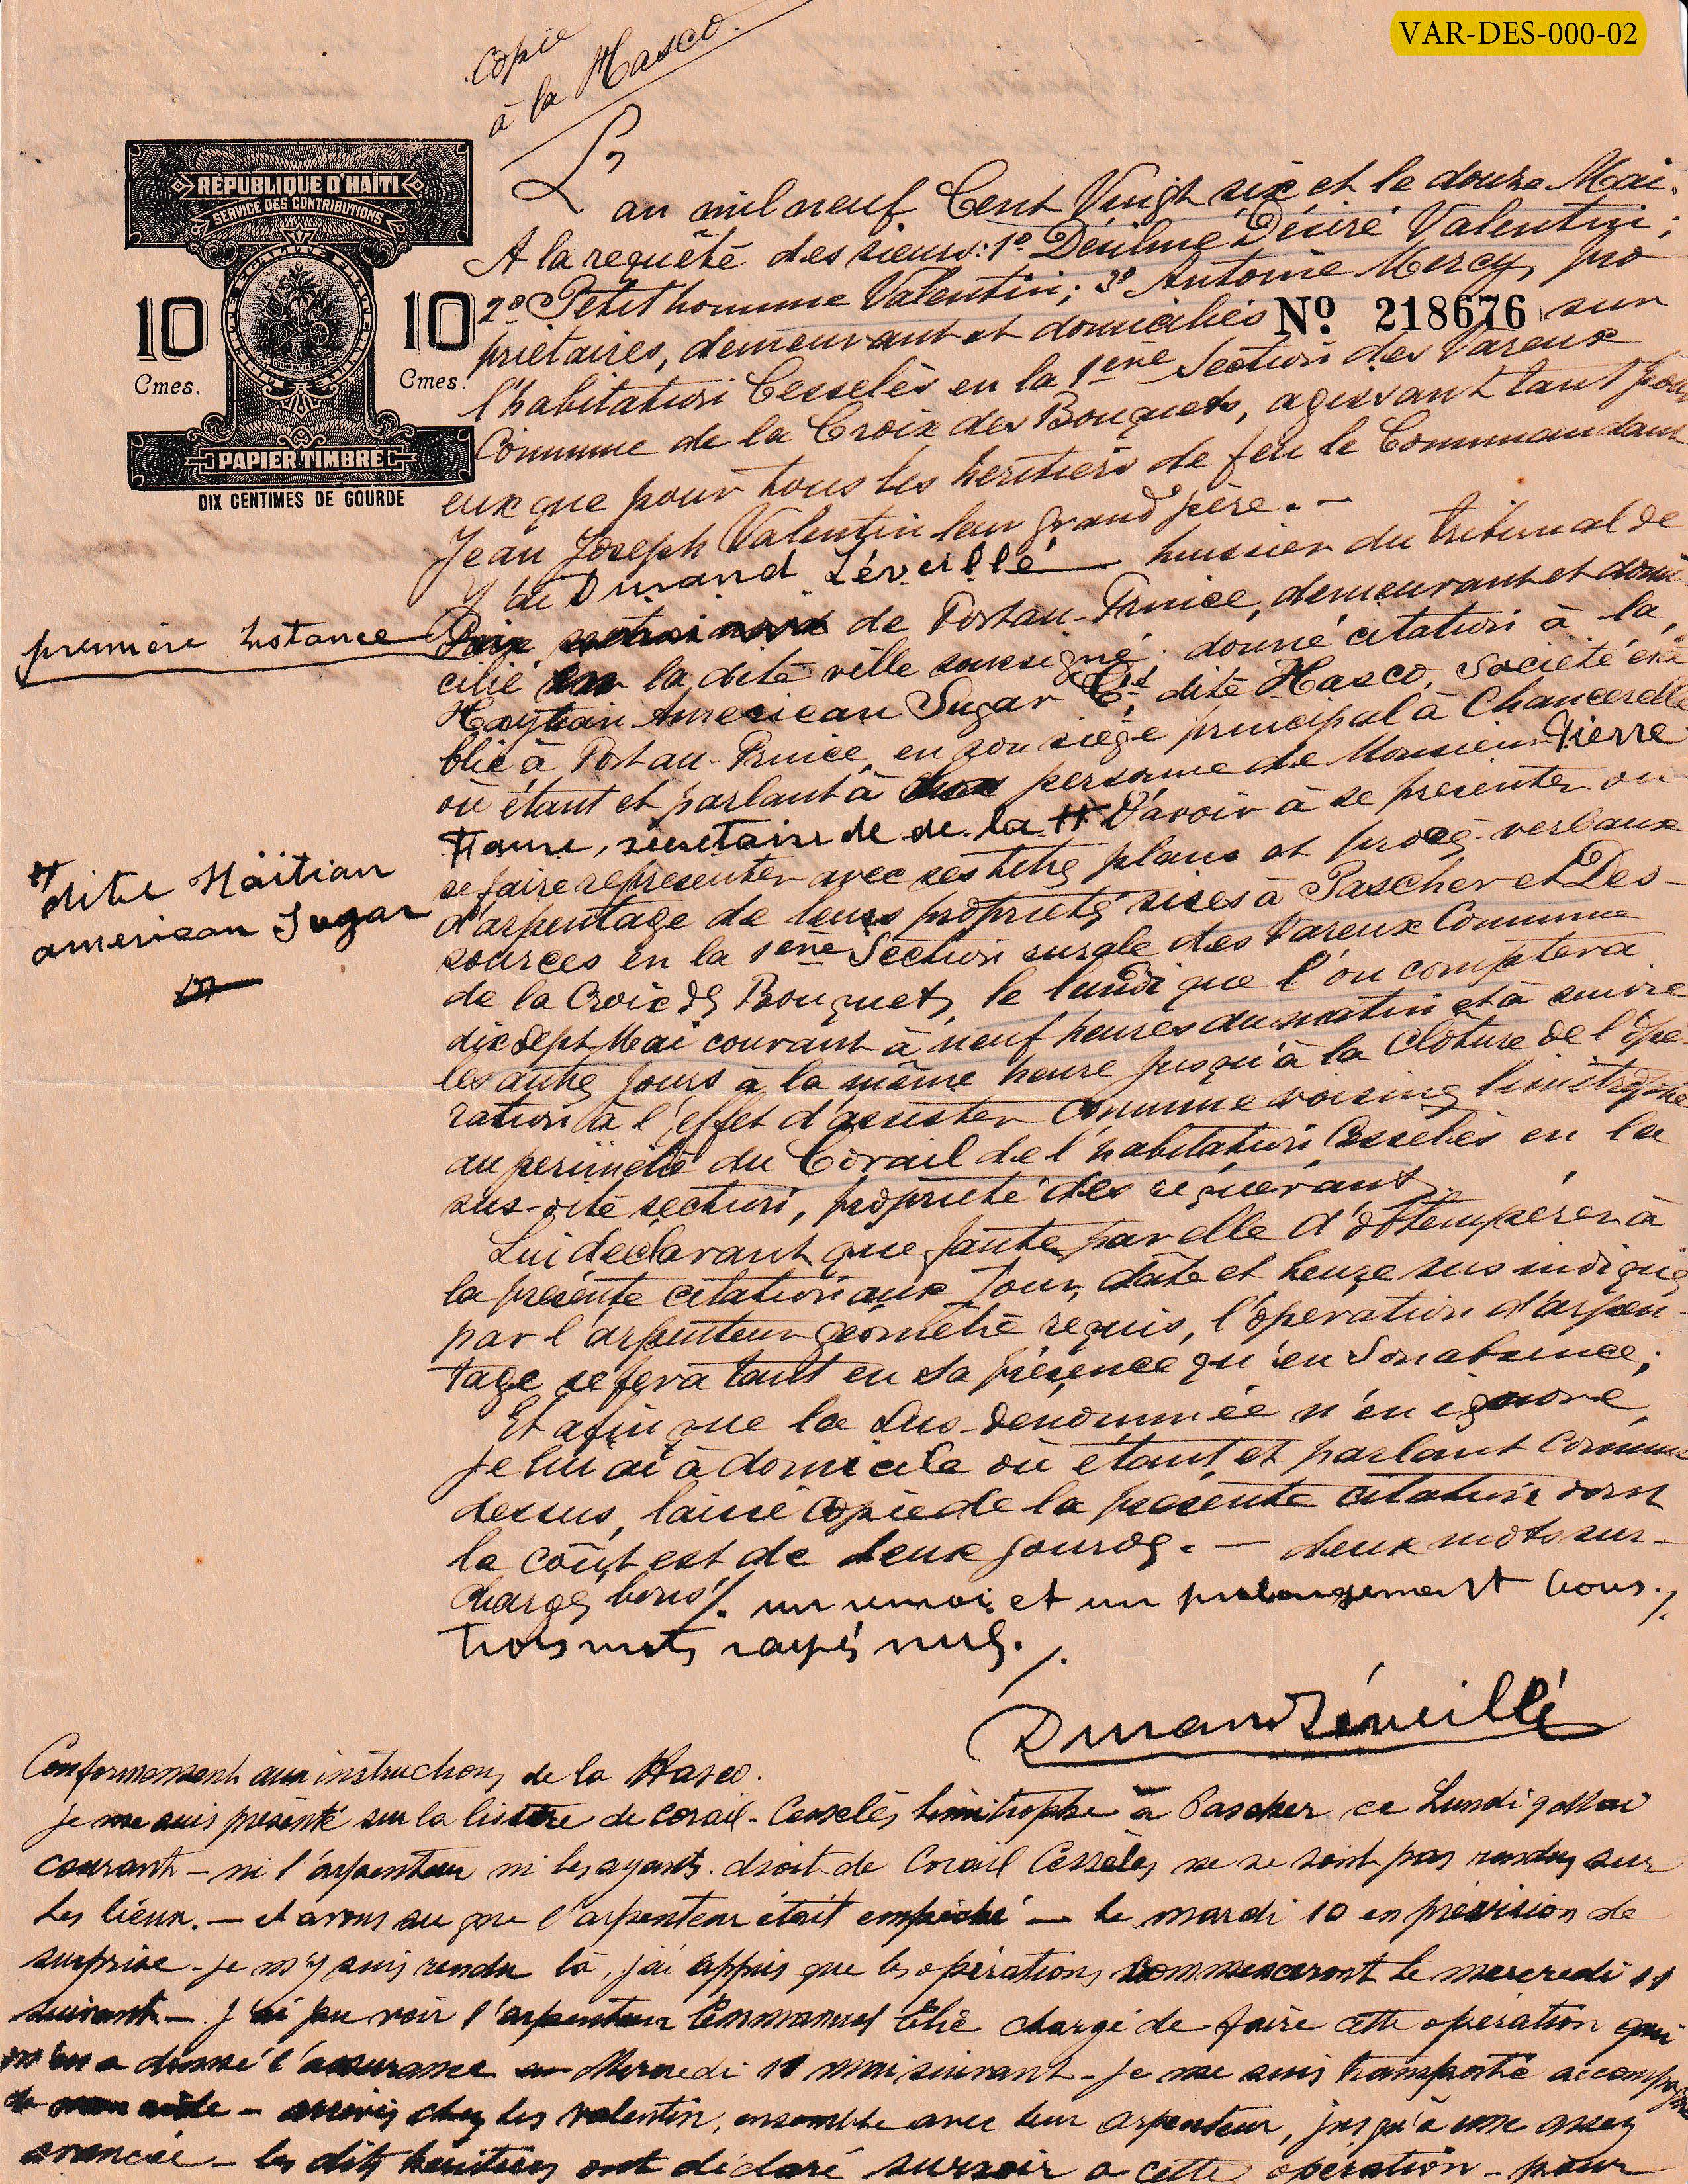 VAR-DES-000-02
Copie
à la Hasco.
RÉPUBLIQUE D'HAÏTI
SERVICE DES CONTRIBUTIONS
10 10
Cmes. Cmes.
PAPIER TIMBRÉ
DIX CENTIMES DE GOURDE
No 218676
L'an mil neuf Cent Vingt six et le douze Mai.
A la requête des sieurs: 1º Désilmé Désiré Valentin;
2º Petit homme Valentin; 3º Antoine Mercy, pro
priétaires, demeurant et domiciliés sur
l'habitation Cesselès en la 1ère Section des Vareux
Commune de la Croix des Bouquets, agissant tant pour
eux que pour tous les héritiers de feu le Commandant
Jean Joseph Valentin leur grand père. —
Durand Léveillé huissier du tribunal de
première Instance
de Port-au-Prince, demeurant et domi-
cilié la dite ville soussigné, donné citation à la
Haytian American Sugar Cº, dite Hasco, Société éta
blie à Port au-Prince, en son siège principal à Chancerelle
où étant et parlant à personne de Monsieur Pierre
secretaire de de la # D'avoir à se présenter ou
# dite Haïtian
american Sugar
se faire représenter avec ses titres plans et procès-verbaux
d'arpentage de leurs propriétés sises à Pascher et Des-
sources en la 1ère Section rurale des Vareux Commune
de la Croix ds Bouquets, le lundi que l'on comptera
dix sept Mai courant à neuf heures du matin et à suivre
les autres jours à la même heure jusqu'à la clôture de l'opé-
ration à l'effet d'assister comme voisins limitrophe
au périmètre du Corail de l'habitation Cesselès en la
sus-dite section, propriété des requérants.
Lui déclarant que faute par elle d'obtempérer à
la présente citation aux jour, date et heure sus indiqués
par l'arpenteur géomètre requis, l'opération d'arpen-
tage se fera tant en sa présence qu'en son absence;
Et afin que la sus-dénommée n'en ignore,
je lui ai à domicile où étant et parlant comme
dessus, laissé copie de la présente citation dont
le coût est de deux gourdes. — deux mots sur-
chargés bons /. un renvoi et un prolongement bons /.
Trois mots rayés nuls. /.
Durand Léveillé
Conformement aux instructions de la Hasco.
je me suis présenté sur la lisière de corail-Cesselès limitrophe à Pascher ce Lundi 9 Mai
courant — ni l'arpenteur ni les ayants droit de Corail Cesselès ne se sont pas rendus sur
les lieux. — et avons su que l'arpenteur était empêché — le mardi 10 en prévision de
surprise - je m'y suis rendu là, j'ai appris que les opérations commenceront le mercredi 11
suivant — j'ai pu voir l'arpenteur Emmanuel Elie chargé de faire cette opération qui
m'en a donné l'assurance Mercredi 11 mai suivant - je me suis transporté accompagné
de mon aide - arrivés chez les Valentin, ensemble avec leur arpenteur, jusqu'à une assez
avancée — les dits héritiers ont déclaré surseoir a cette opération — pour